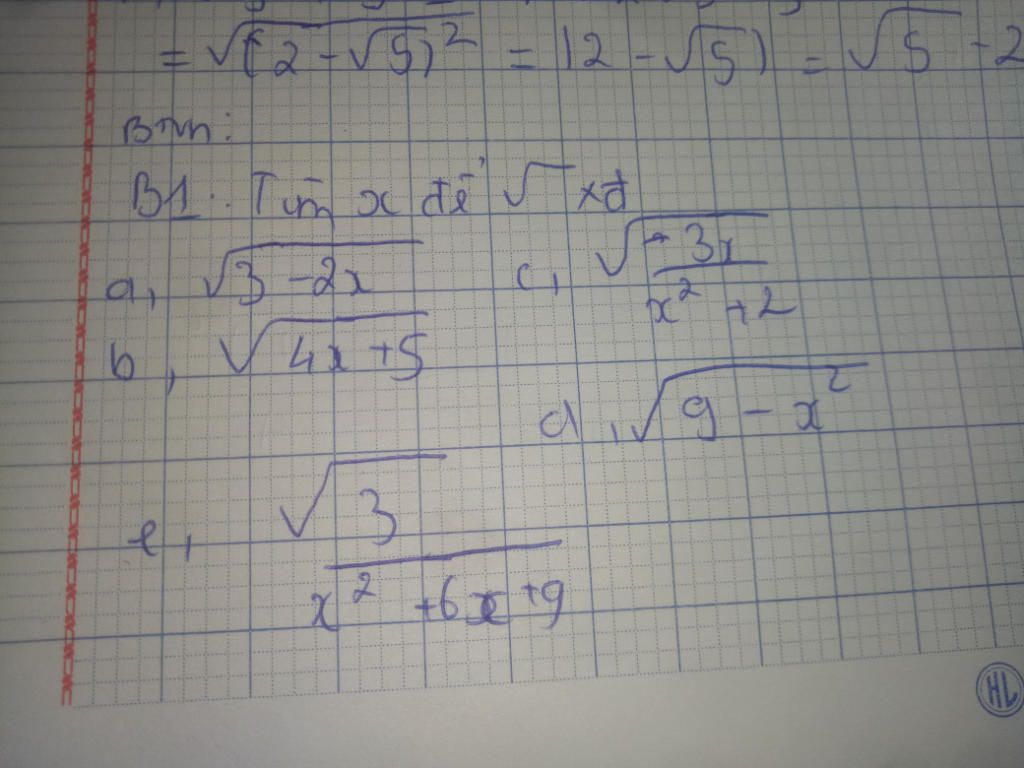 = √(2 - √5)² = |2 - √5| = √5 - 2
BTVN:
B1: Tìm x để √ xđ
a, √3 - 2x
c, √-3x / x² + 2
b, √4x + 5
d, √9 - x²
e, √3 / x² + 6x + 9
HL